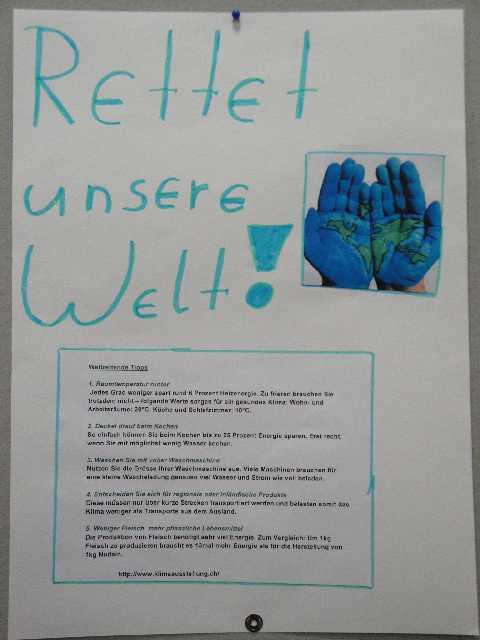 Rettet
unsere
Welt!
Weltrettende Tipps
1. Raumtemperatur runter
Jedes Grad weniger spart rund 6 Prozent Heizenergie. Zu frieren brauchen Sie
trotzdem nicht – folgende Werte sorgen für ein gesundes Klima: Wohn- und
Arbeitsräume: 20°C. Küche und Schlafzimmer: 18°C.
2. Deckel drauf beim Kochen
So einfach können Sie beim Kochen bis zu 25 Prozent Energie sparen. Erst recht,
wenn Sie mit möglichst wenig Wasser kochen.
3. Waschen Sie mit voller Waschmaschine
Nutzen Sie die Grösse Ihrer Waschmaschine aus. Viele Maschinen brauchen für
eine kleine Waschladung genauso viel Wasser und Strom wie voll beladen.
4. Entscheiden Sie sich für regionale oder inländische Produkte
Diese müssen nur über kurze Strecken transportiert werden und belasten somit das
Klima weniger als Transporte aus dem Ausland.
5. Weniger Fleisch, mehr pflanzliche Lebensmittel
Die Produktion von Fleisch benötigt sehr viel Energie. Zum Vergleich: Um 1kg
Fleisch zu produzieren braucht es mal mehr Energie als für die Herstellung von
1kg Nudeln.
http://www.klimaausstellung.ch/